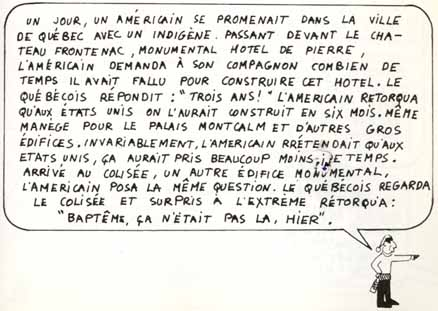 UN JOUR, UN AMÉRICAIN SE PROMENAIT DANS LA VILLE
DE QUÉBEC AVEC UN INDIGÈNE. PASSANT DEVANT LE CHA-
TEAU FRONTENAC, MONUMENTAL HOTEL DE PIERRE,
L'AMÉRICAIN DEMANDA À SON COMPAGNON COMBIEN DE
TEMPS IL AVAIT FALLU POUR CONSTRUIRE CET HOTEL. LE
QUÉBÉCOIS RÉPONDIT: "TROIS ANS!" L'AMERICAIN RETORQUA
QU'AUX ÉTATS UNIS ON L'AURAIT CONSTRUIT EN SIX MOIS. MÊME
MANÈGE POUR LE PALAIS MONTCALM ET D'AUTRES GROS
ÉDIFICES. INVARIABLEMENT, L'AMERICAIN PRÉTENDAIT QU'AUX
ETATS UNIS, ÇA AURAIT PRIS BEAUCOUP MOINS DE TEMPS.
ARRIVÉ AU COLISÉE, UN AUTRE ÉDIFICE MONUMENTAL,
L'AMERICAIN POSA LA MÊME QUESTION. LE QUÉBÉCOIS REGARDA
LE COLISÉE ET SURPRIS À L'EXTRÈME RÉTORQUA:
"BAPTÊME, ÇA N'ÉTAIT PAS LA, HIER".